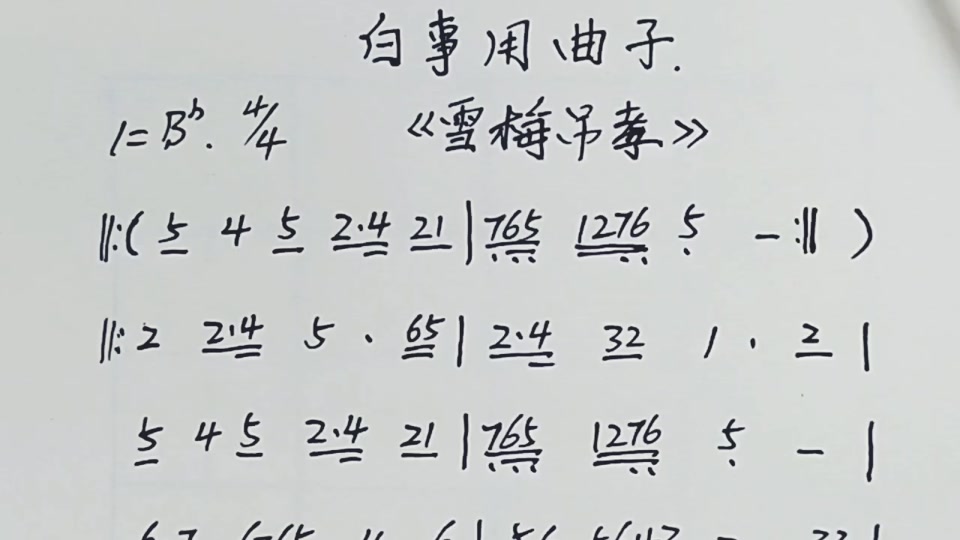 白事用曲子.
1=Bb. 4/4 《雪梅吊孝》
‖:( 5 4 5 2·4 21 | 765 1276 5 - :‖ )
‖: 2 2·4 5 · 65 | 2·4 32 1 · 2 |
5 4 5 2·4 21 | 765 1276 5 - |